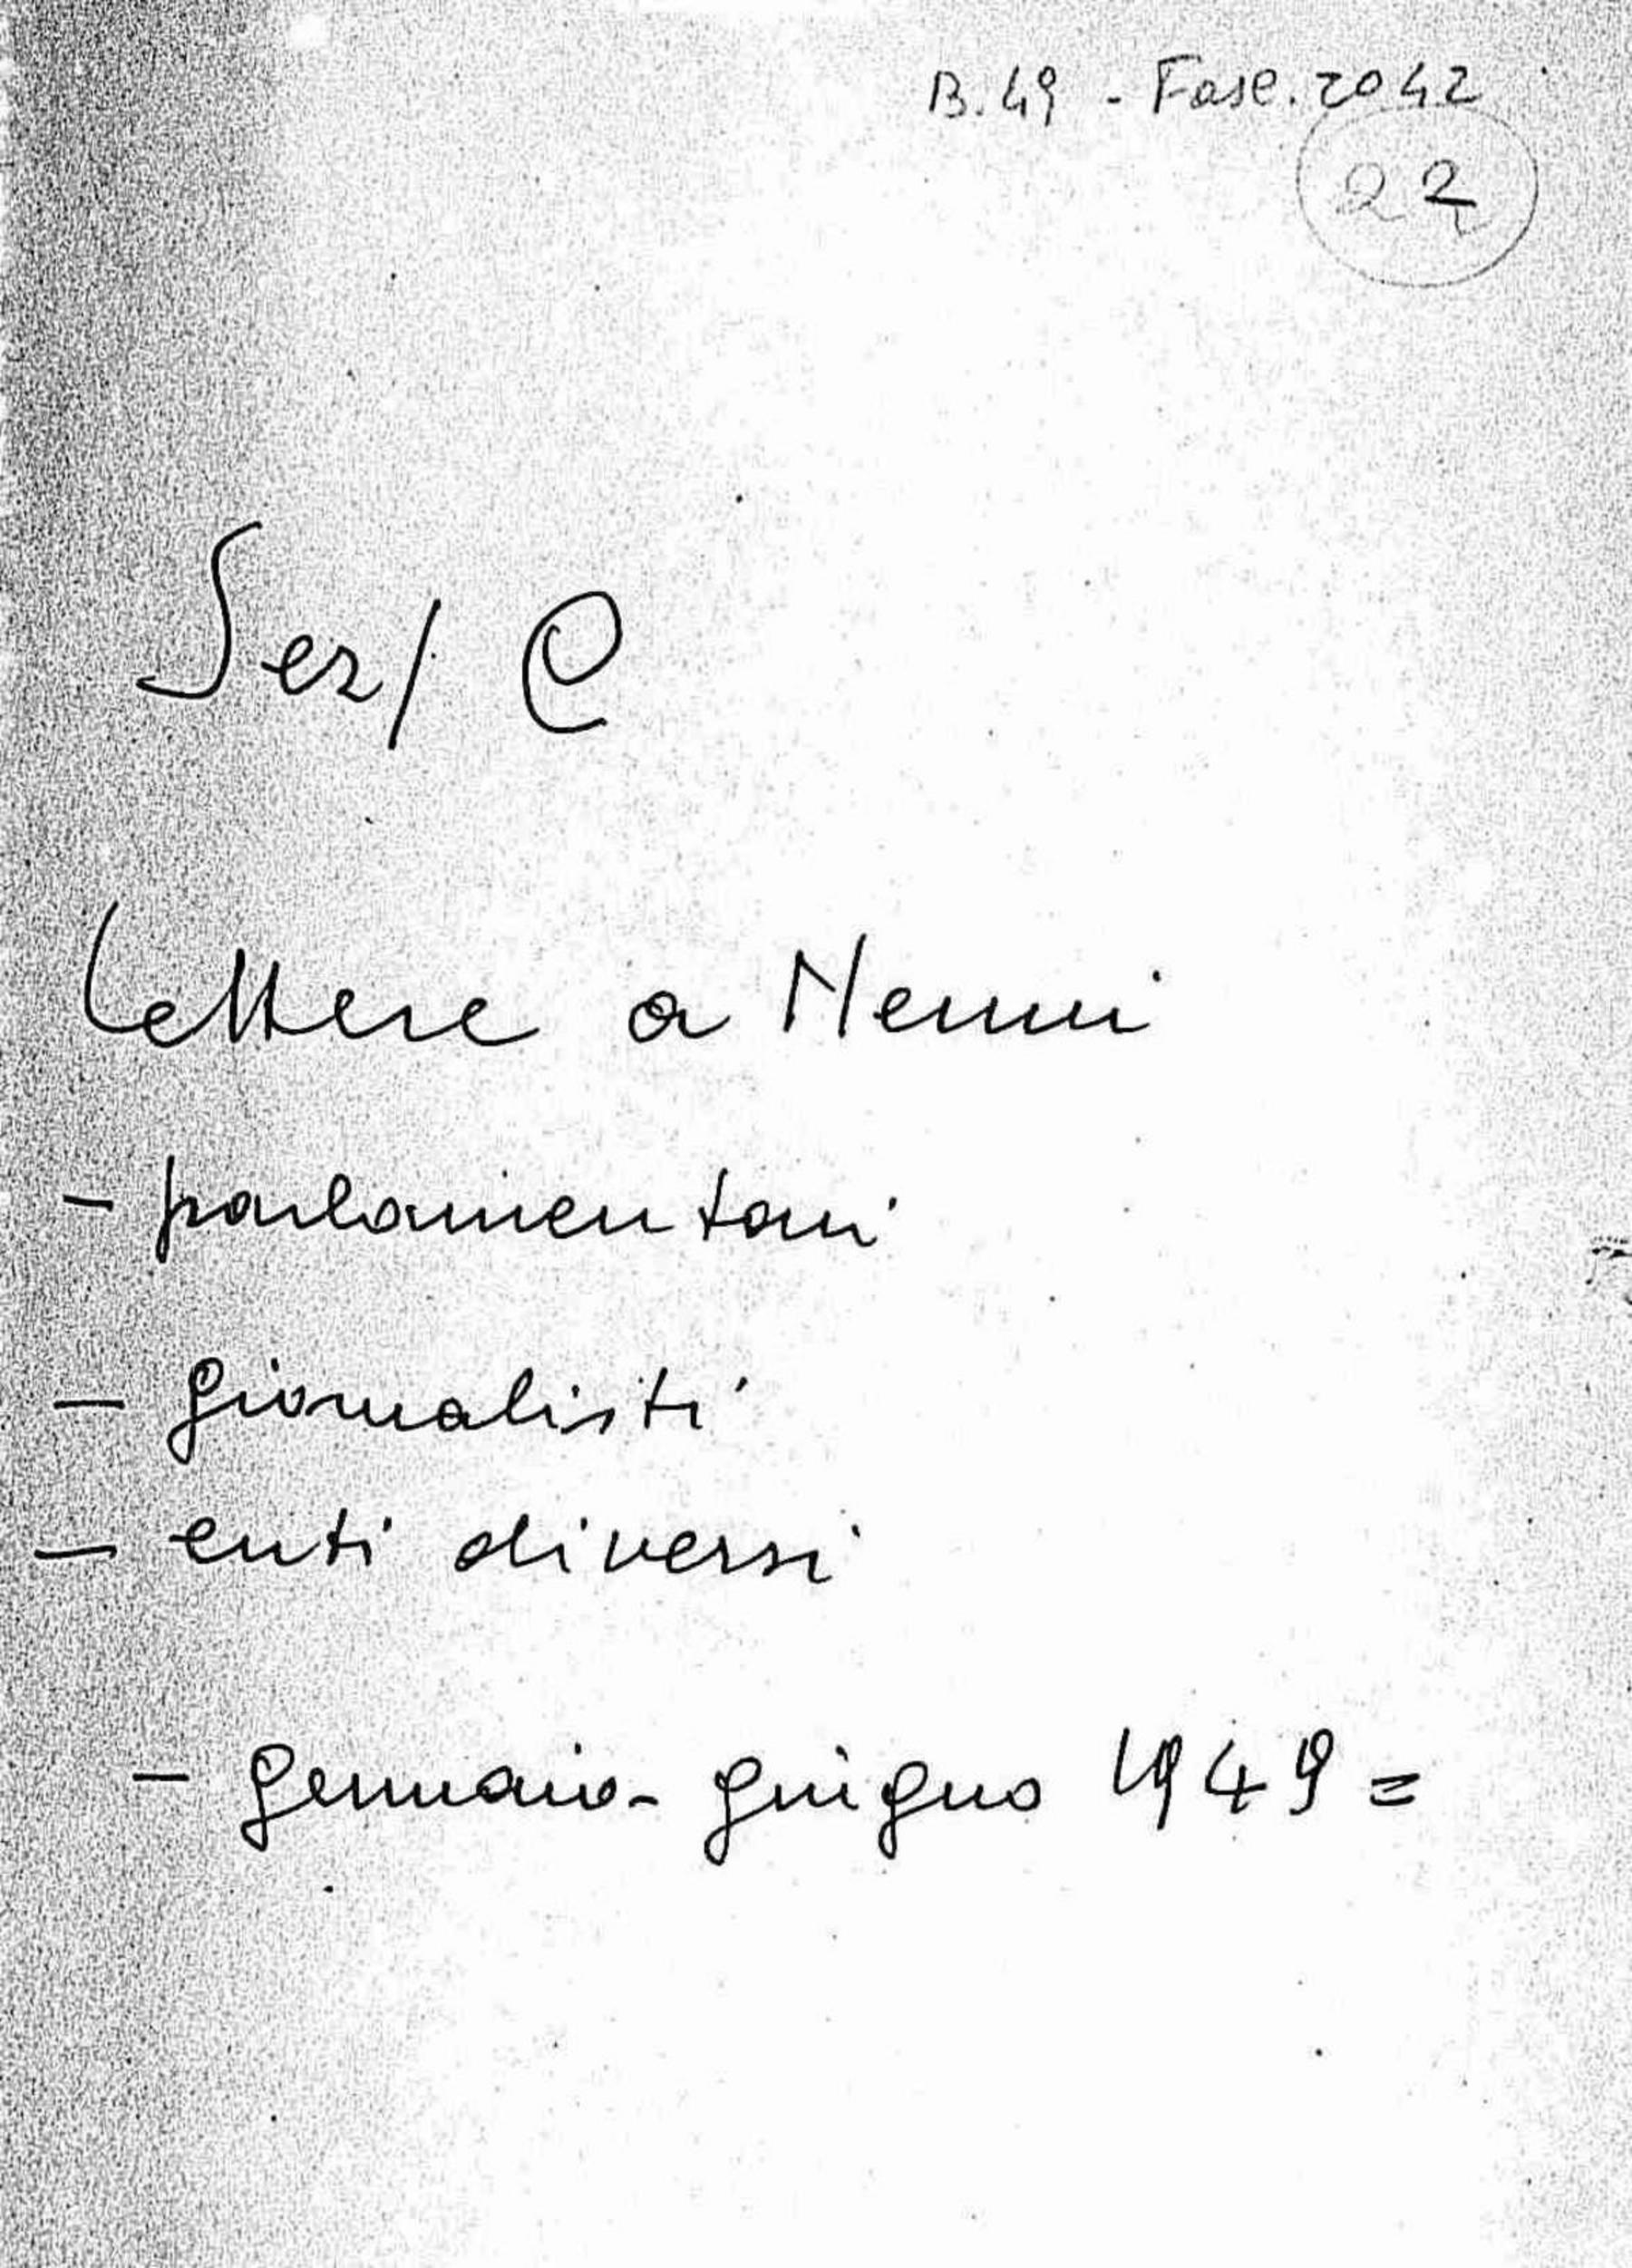 B.49 - Fasc. 2042
22
Sez/ C
Lettere a Nenni
- parlamentari
- giornalisti
- enti diversi
- gennaio - giugno 1949 =